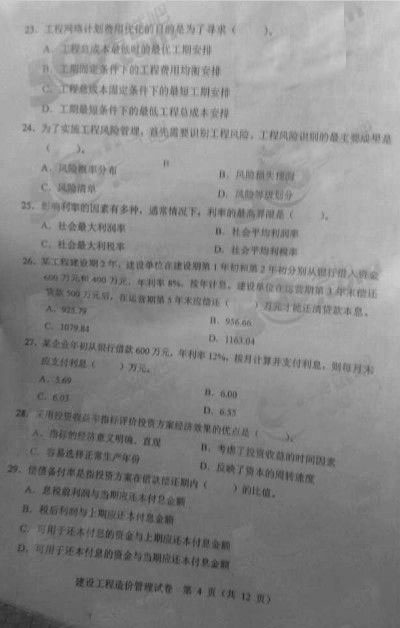 23. 工程网络计划费用优化的目的是为了寻求（ ）。
A. 工程总成本最低时的最优工期安排
B. 工期固定条件下的工程费用均衡安排
C. 工程总成本固定条件下的最短工期安排
D. 工期最短条件下的最低工程总成本安排
24. 为了实施工程风险管理，首先需要识别工程风险，工程风险识别的最主要成果是
（ ）。
A. 风险概率分布 B. 风险损失预测
C. 风险清单 D. 风险等级划分
25. 影响利率的因素有多种，通常情况下，利率的最高界限是（ ）。
A. 社会最大利润率 B. 社会平均利润率
C. 社会最大利税率 D. 社会平均利税率
26. 某工程建设期2年，建设单位在建设期第1年初和第2年初分别从银行借入资金
600万元和400万元，年利率8%，按年计息，建设单位在运营期第3年末偿还
贷款500万元后，在运营期第5年末应偿还（ ）万元才能还清贷款本息。
A. 925.79 B. 956.66
C. 1079.84 D. 1163.04
27. 某企业年初从银行借款600万元，年利率12%，按月计算并支付利息，则每月末
应支付利息（ ）万元。
A. 5.69 B. 6.00
C. 6.03 D. 6.55
28. 采用投资收益率指标评价投资方案经济效果的优点是（ ）。
A. 指标的经济意义明确、直观 B. 考虑了投资收益的时间因素
C. 容易选择正常生产年份 D. 反映了资本的周转速度
29. 偿债备付率是指投资方案在借款偿还期内（ ）的比值。
A. 息税前利润与当期应还本付息金额
B. 税后利润与上期应还本付息金额
C. 可用于还本付息的资金与上期应还本付息金额
D. 可用于还本付息的资金与当期应还本付息金额
建设工程造价管理试卷 第 4 页（共 12 页）